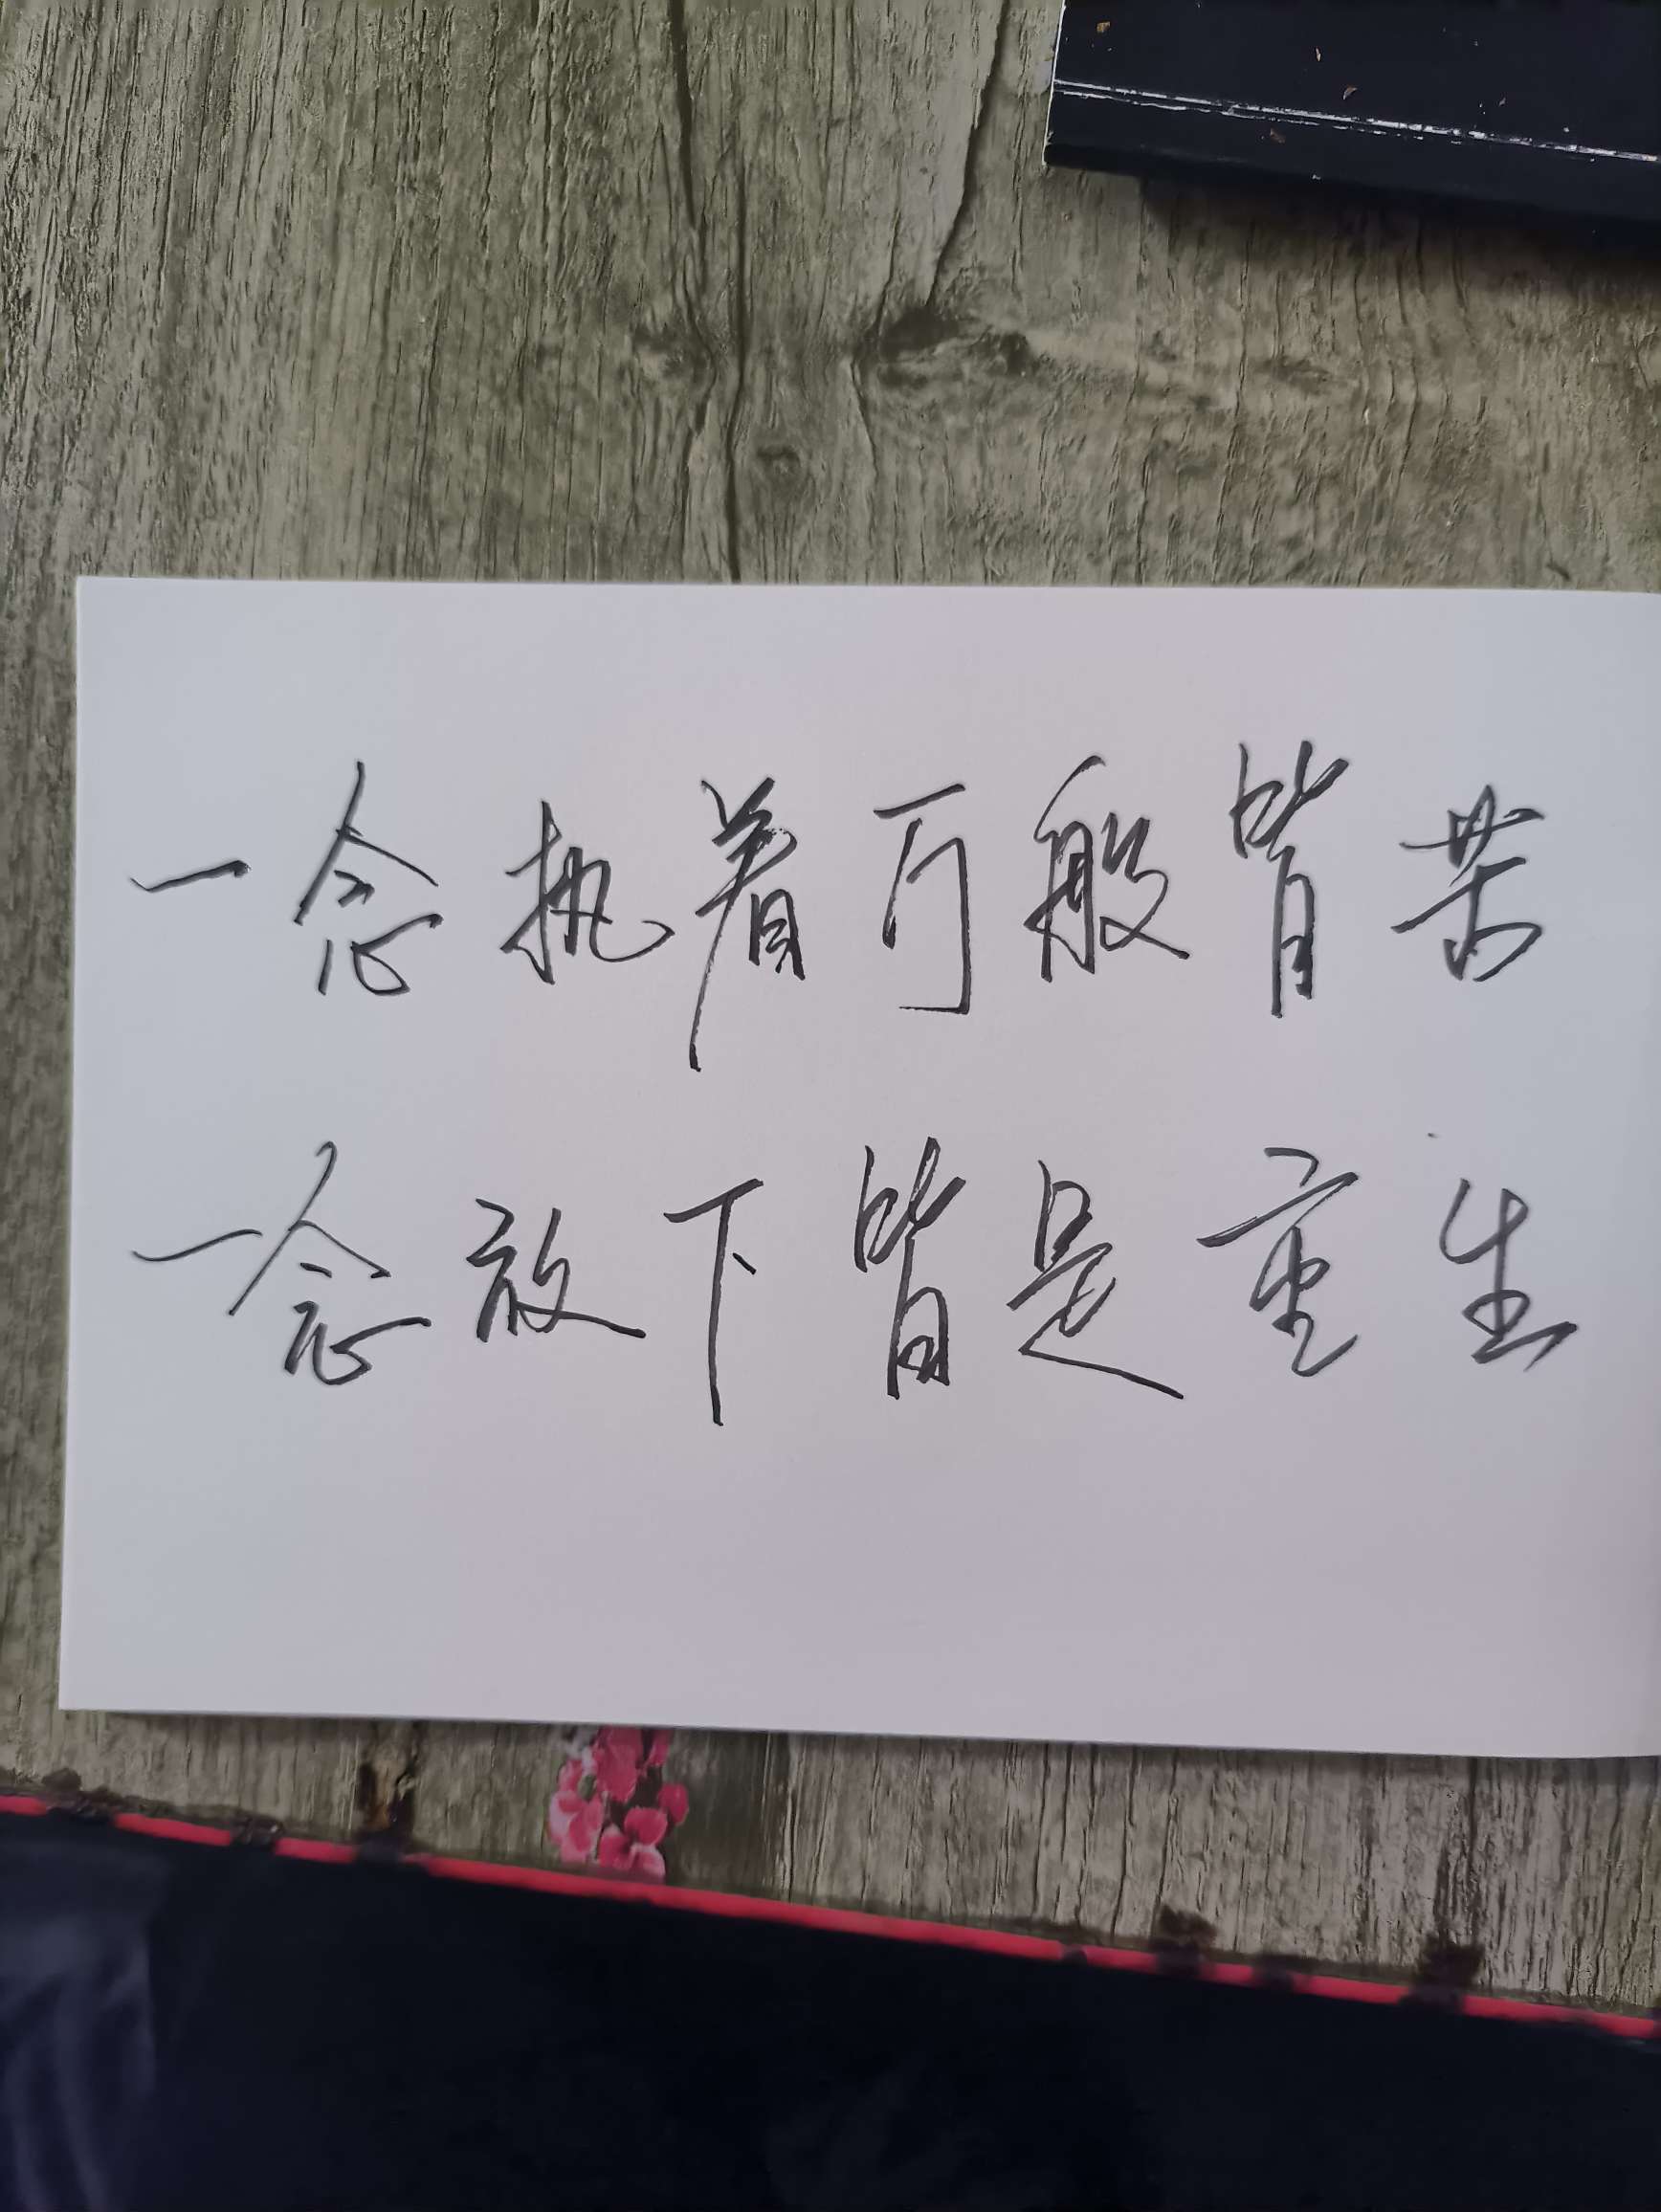 一念执着万般皆苦
一念放下皆是重生